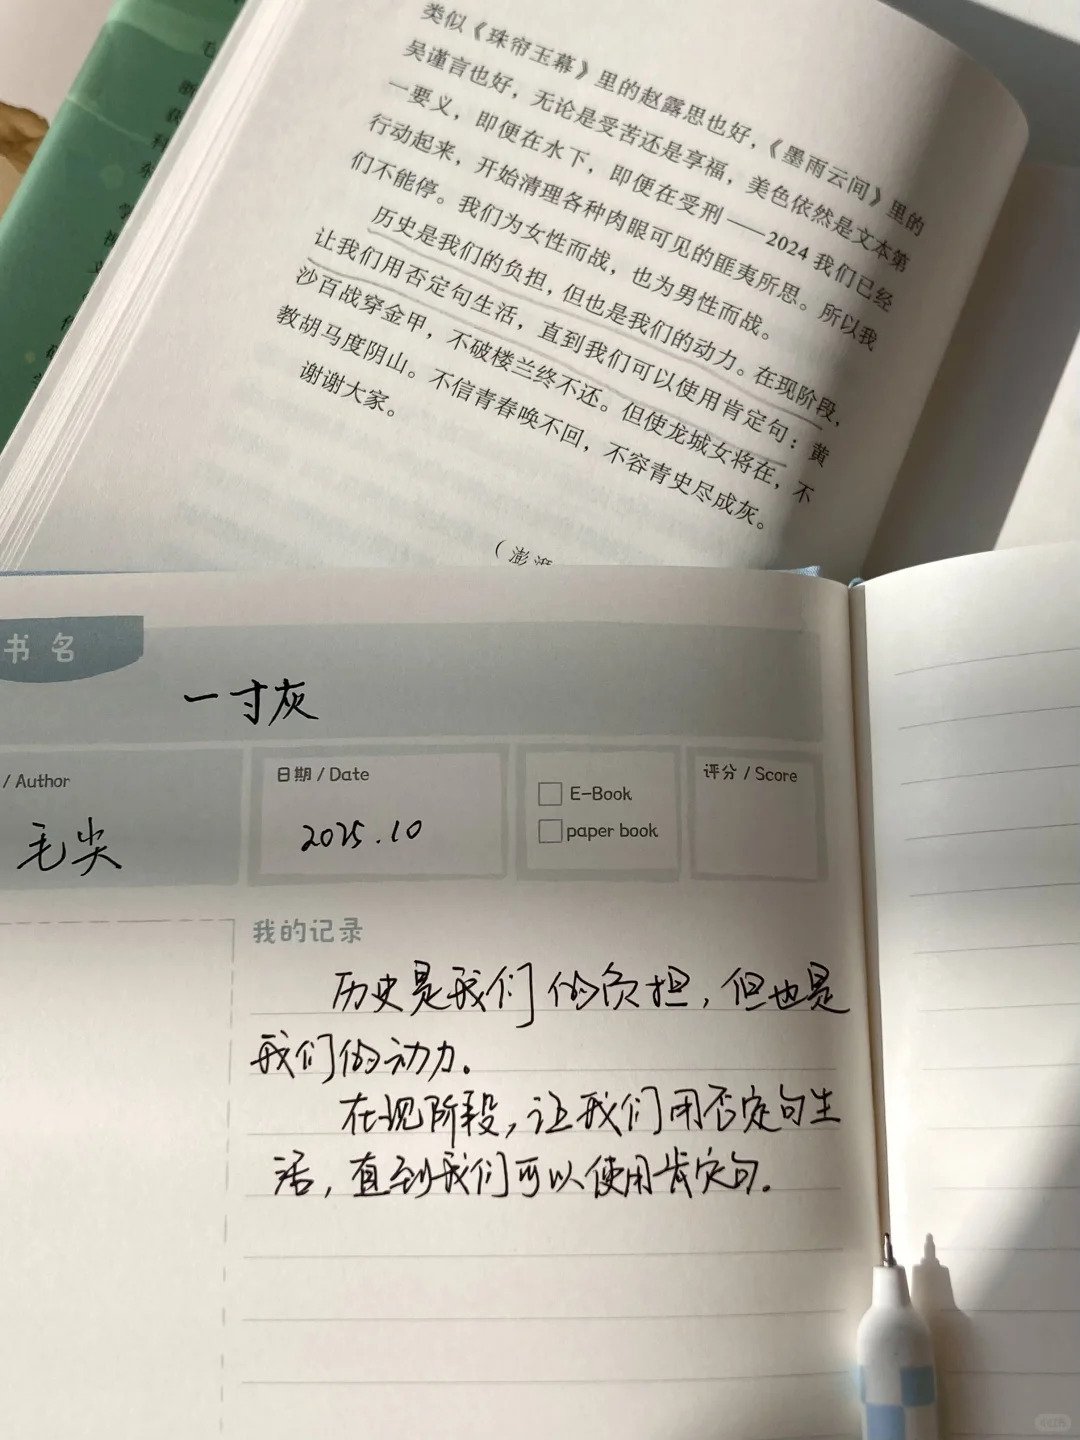 类似《珠帘玉幕》里的赵露思也好，《墨雨云间》里的
吴谨言也好，无论是受苦还是享福，美色依然是文本第
一要义，即便在水下，即便在受刑——2024我们已经
行动起来，开始清理各种肉眼可见的匪夷所思。所以我
们不能停。我们为女性而战，也为男性而战。
历史是我们的负担，但也是我们的动力。在现阶段，
让我们用否定句生活，直到我们可以使用肯定句：黄
沙百战穿金甲，不破楼兰终不还。但使龙城女将在，不
教胡马度阴山。不信青春唤不回，不容青史尽成灰。
谢谢大家。
（澎湃
书名
一寸灰
/ Author
毛尖
日期 / Date
2025.10
E-Book
paper book
评分 / Score
我的记录
历史是我们的负担，但也是
我们的动力。
在现阶段，让我们用否定句生
活，直到我们可以使用肯定句。